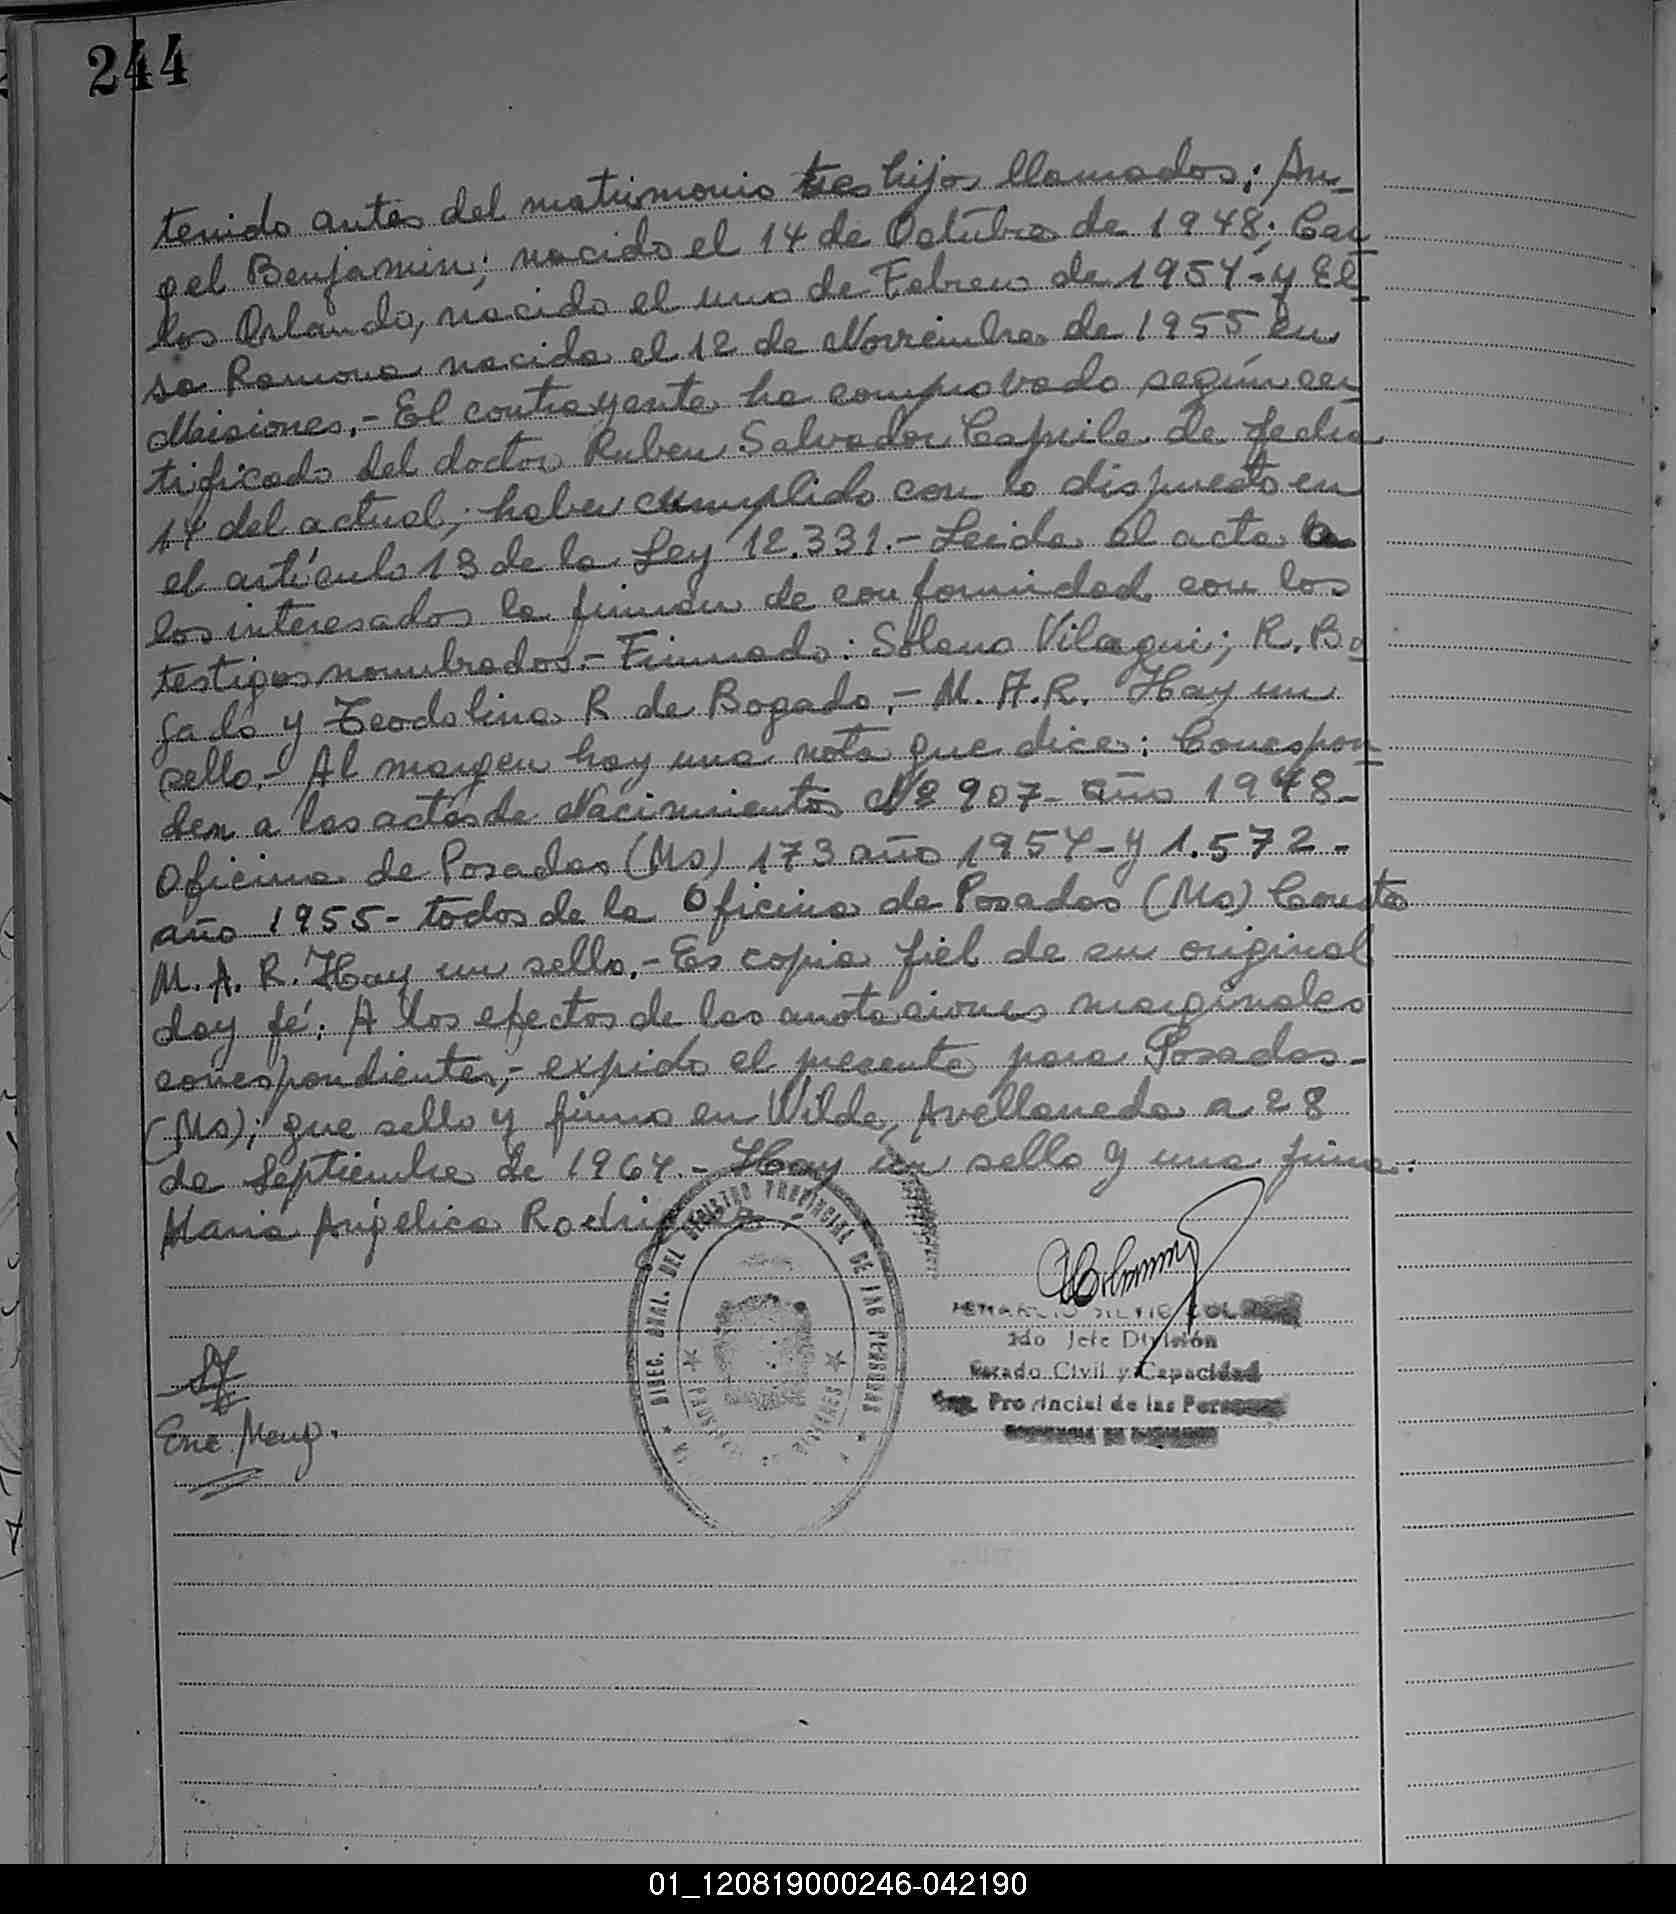 244
tenido antes del matrimonio tres hijos llamados; An-
gel Benjamin; nacido el 14 de Octubre de 1948; Car
los Orlando, nacido el uno de Febrero de 1954 - y El
sa Ramona nacida el 12 de Noviembre de 1955 en
Misiones.- El contrayente ha comprovado según cer
tificado del doctor Ruben Salvador Caprile de fecha
14 del actual; haber cumplido con lo dispuesto en
el artículo 13 de la Ley 12.331.- Leida el acta a
los interesados la firman de conformidad con los
testigos nombrados.- Firmado: Solano Vilagui; R. Bo
gado y Teodolina R de Bogado.- M. A. R. Hay un
sello.- Al margen hay una nota que dice: Correspon
den a las actas de Nacimientos Nº 907- año 1948-
Oficina de Posadas (Ms) 173 año 1954 - y 1.572 -
año 1955 - todos de la Oficina de Posadas (Ms) Conste
M. A. R. Hay un sello.- Es copia fiel de su original
doy fé. A los efectos de las anotaciones marginales
correspondientes,- expido el presente para Posadas -
(Ms); que sello y firmo en Wilde, Avellaneda a 28
de Septiembre de 1964.- Hay un sello y una firma:
Maria Angélica Rodriguez
DIREC. GRAL. DEL REGISTRO PROVINCIAL DE LAS PERSONAS
2do Jefe División
Estado Civil y Capacidad
Reg. Provincial de las Personas
01_120819000246-042190